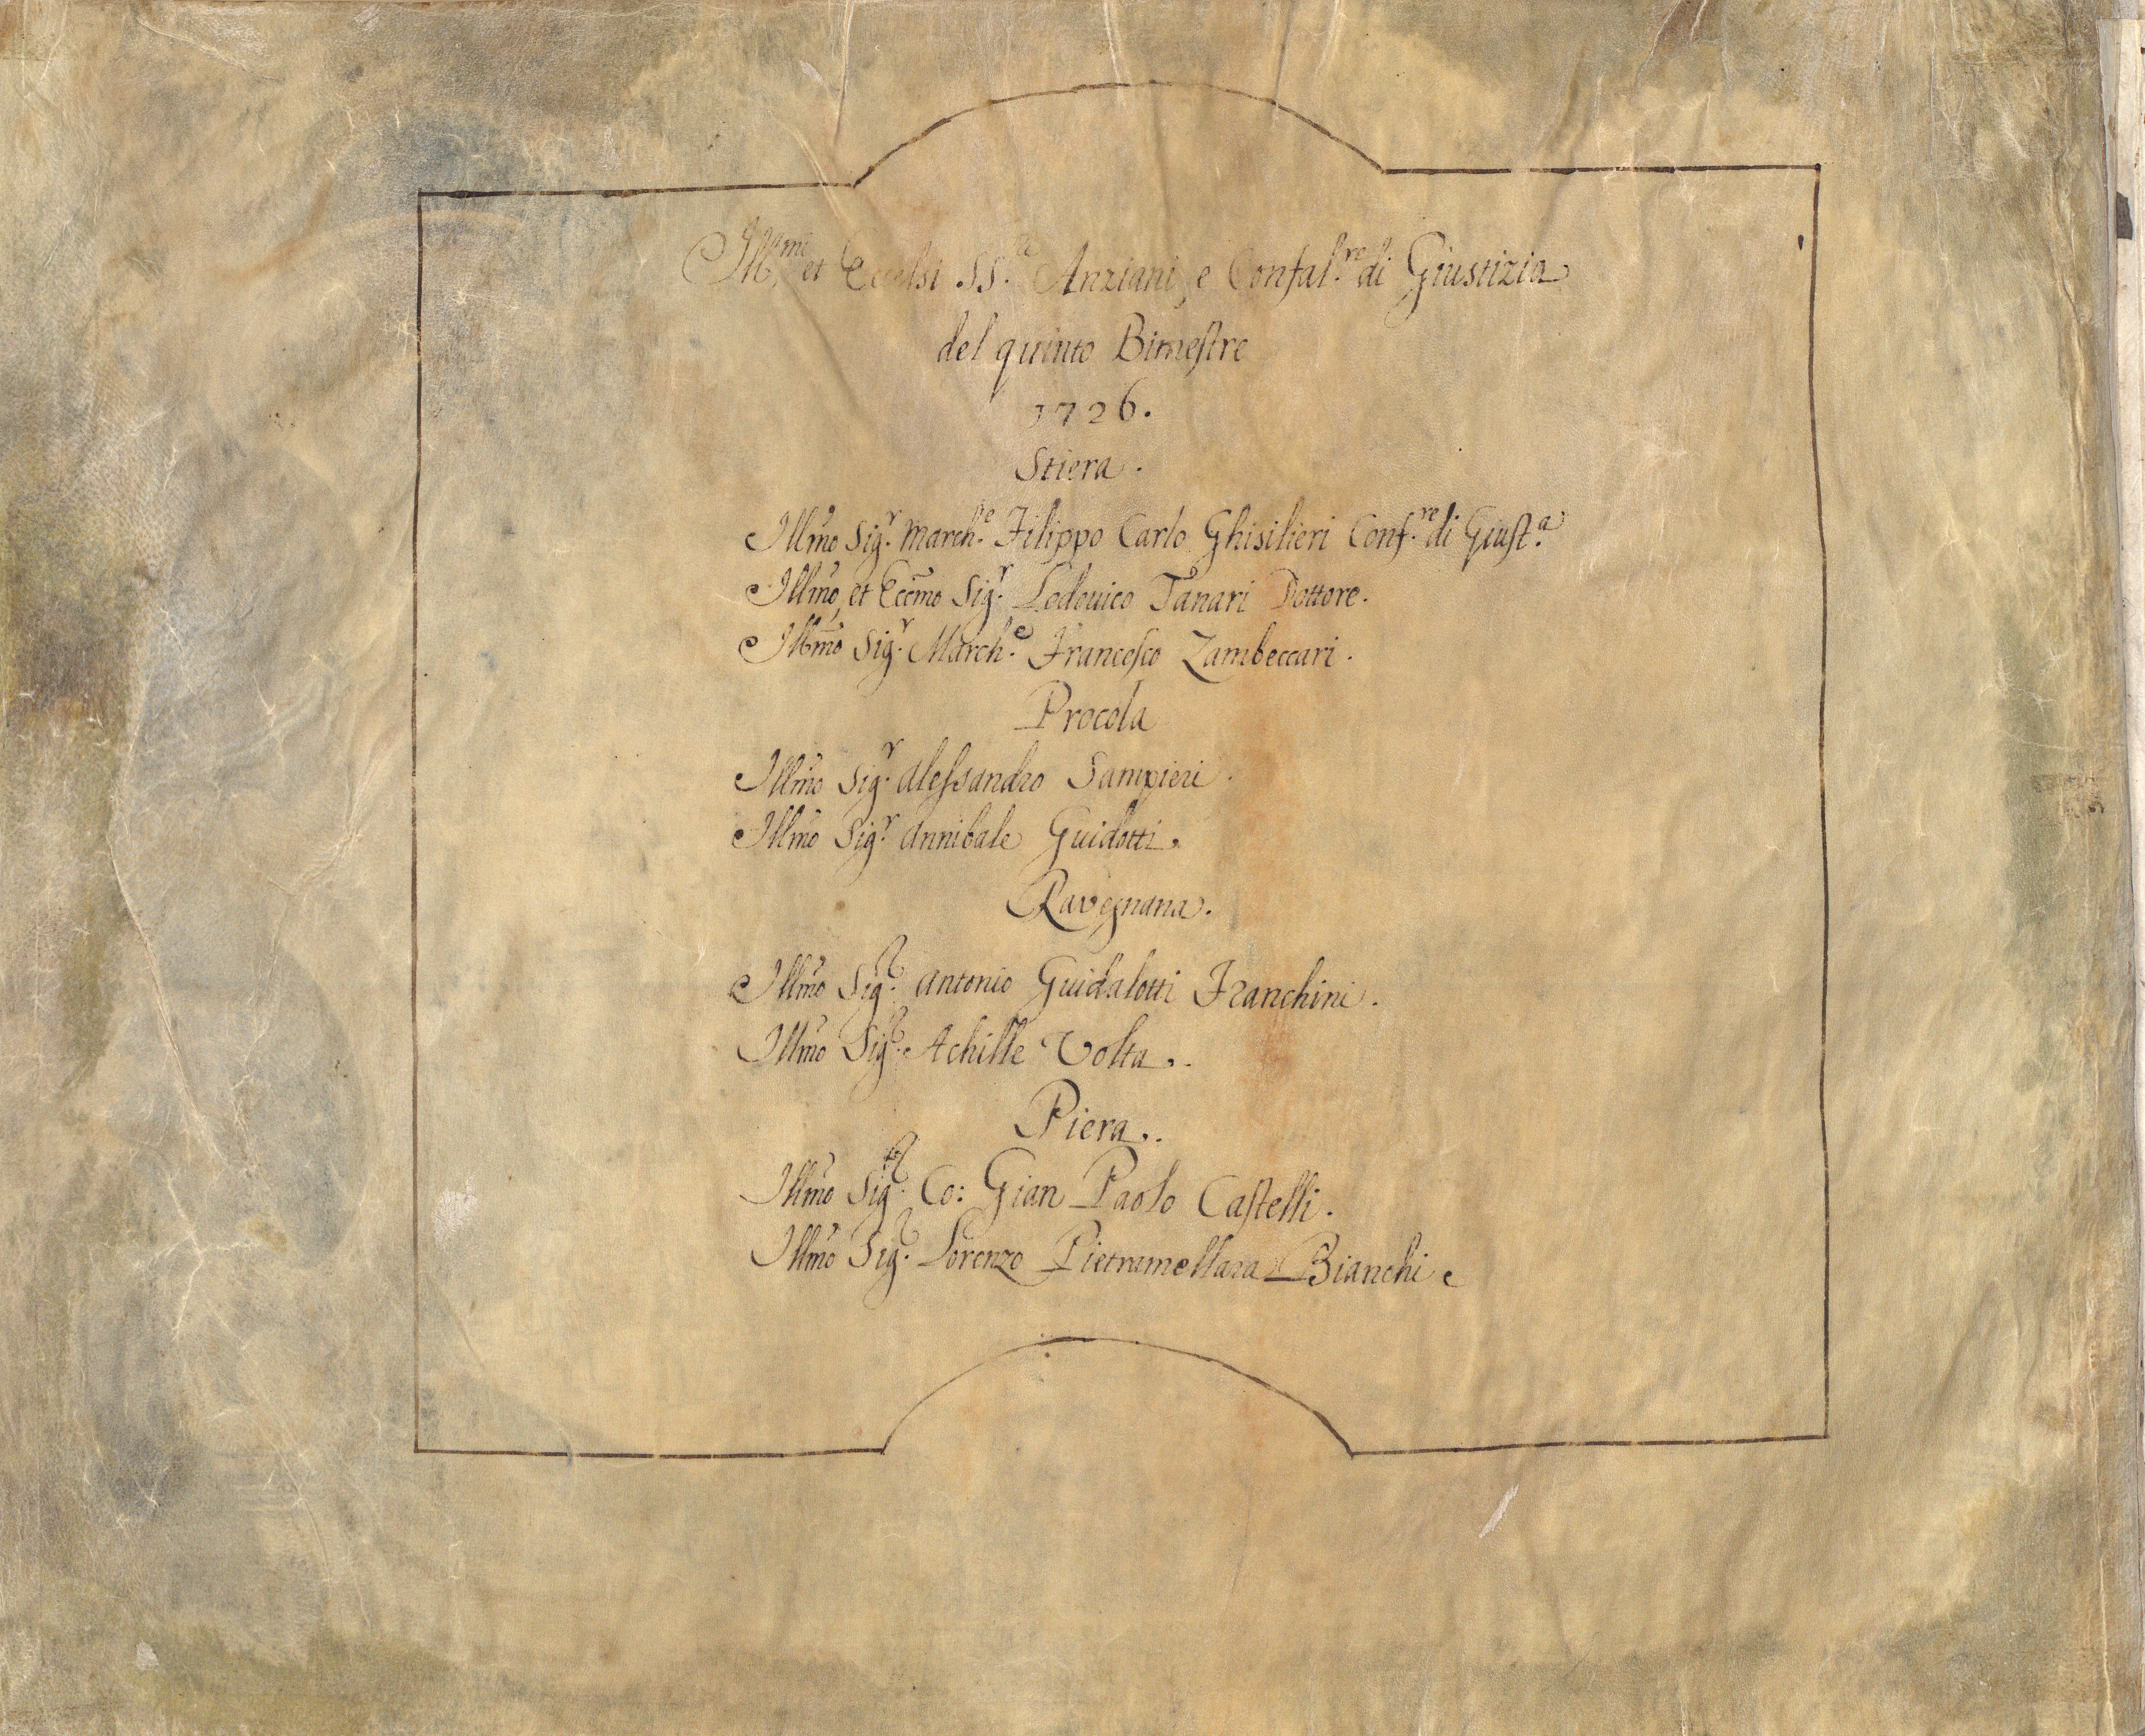 Ill.mi et Eccelsi SS.ri Anziani, e Confal.re di Giustizia
del quinto Bimestre
1726.
Stiera.
Illmo Sig.r March.e Filippo Carlo Ghisilieri Conf.re di Giust.a
Illmo, et Eccmo Sig.r Lodovico Tanari Dottore.
Illmo Sig.r March.e Francesco Zambeccari.
Procola
Illmo Sig.r Alessandro Sampieri.
Illmo Sig.r Annibale Guidotti.
Ravegnana.
Illmo Sig.r Antonio Guidalotti Franchini.
Illmo Sig.r Achille Volta.
Piera.
Illmo Sig.r Co: Gian Paolo Castelli.
Illmo Sig.r Lorenzo Pietramellara Bianchi